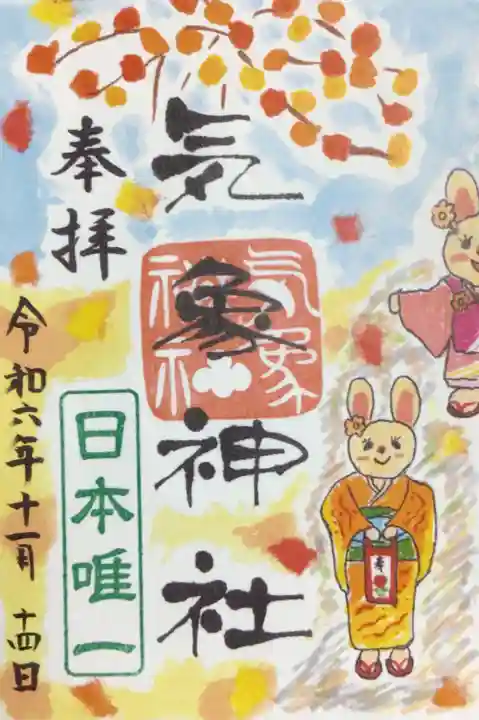 奉拝
気象神社
気象神社
日本唯一
令和六年十一月十四日